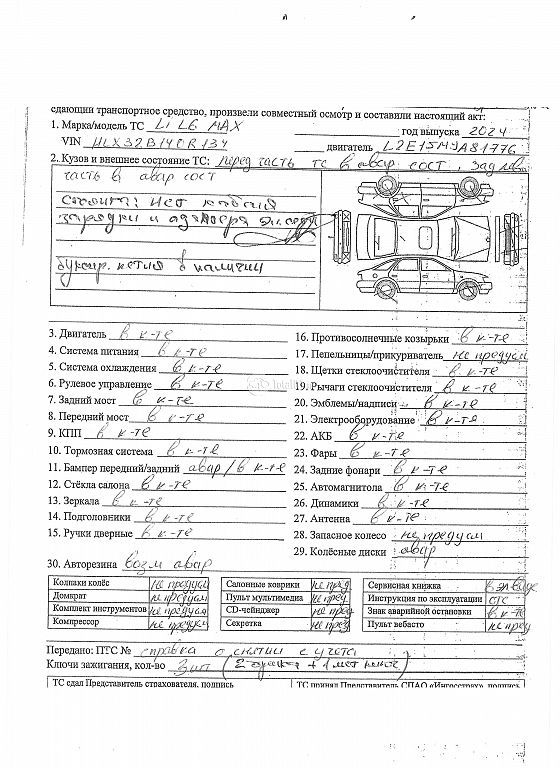 сдающий транспортное средство, произвели совместный осмотр и составили настоящий акт:
1. Марка/модель ТС Li L6 MAX год выпуска 2024
VIN HLX32B140R134 двигатель L2E15M
2. Кузов и внешнее состояние ТС: перед часть ТС в авар сост, зад лев
часть в авар сост
нет кабеля
зарядки и
буксир. петля в наличии
3. Двигатель в к-те
4. Система питания в к-те
5. Система охлаждения в к-те
6. Рулевое управление в к-те
7. Задний мост в к-те
8. Передний мост в к-те
9. КПП в к-те
10. Тормозная система в к-те
11. Бампер передний/задний авар / в к-те
12. Стёкла салона в к-те
13. Зеркала в к-те
14. Подголовники в к-те
15. Ручки дверные в к-те
16. Противосолнечные козырьки в к-те
17. Пепельницы/прикуриватель не предусм
18. Щетки стеклоочистителя в к-те
19. Рычаги стеклоочистителя в к-те
20. Эмблемы/надписи в к-те
21. Электрооборудование в к-те
22. АКБ в к-те
23. Фары в к-те
24. Задние фонари в к-те
25. Автомагнитола в к-те
26. Динамики в к-те
27. Антенна в к-те
28. Запасное колесо не предусм
29. Колёсные диски авар
30. Авторезина возм авар
Колпаки колёс не предусм
Домкрат не предусм
Комплект инструментов не предусм
Компрессор не предусм
Салонные коврики не пред
Пульт мультимедиа не пред
CD-чейнджер не пред
Секретка не пред
Сервисная книжка
Инструкция по эксплуатации
Знак аварийной остановки в к-те
Пульт вебасто не пред
Передано: ПТС № справка о снятии с учета
Ключи зажигания, кол-во 3шт (2 + 1 мет ключ)
ТС сдал Представитель страхователя, подпись
ТС принял Представитель СПАО «Ингосстрах», подпись